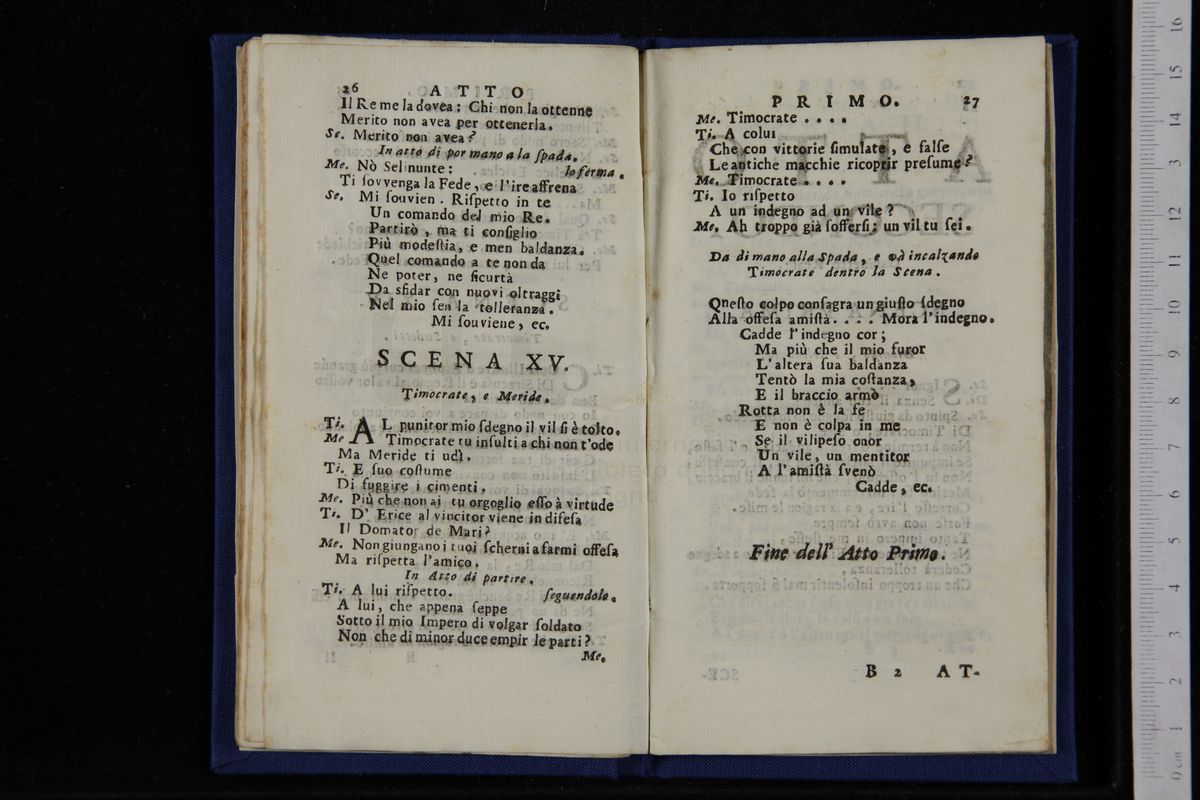 26 ATTO
Il Re me la dovea: Chi non la ottenne
Merito non avea per ottenerla.
Se. Merito non avea?
In atto di por mano a la ſpada.
Me. Nò Selinunte: lo ferma.
Ti ſovvenga la Fede, e l'ire affrena
Se. Mi ſouvien. Riſpetto in te
Un comando del mio Re.
Partirò, ma ti conſiglio
Più modeſtia, e men baldanza.
Quel comando a te non da
Ne poter, ne ſicurtà
Da sfidar con nuovi oltraggi
Nel mio ſen la tolleranza.
Mi ſouviene, ec.
SCENA XV.
Timocrate, e Meride.
Ti. AL punitor mio ſdegno il vil ſi è tolto.
Me Timocrate tu inſulti a chi non t'ode
Ma Meride ti udì.
Ti. E ſuo coſtume
Di fuggire i cimenti.
Me. Più che non ai tu orgoglio eſſo à virtude
Ti. D' Erice al vincitor viene in difeſa
Il Domator de Mari?
Me. Non giungano i tuoi ſcherni a farmi offeſa
Ma riſpetta l'amico.
In Atto di partire.
Ti. A lui riſpetto. ſeguendolo.
A lui, che appena ſeppe
Sotto il mio Impero di volgar ſoldato
Non che di minor duce empir le parti?
Me.
PRIMO. 27
Me. Timocrate . . . .
Ti. A colui
Che con vittorie ſimulate, e falſe
Le antiche macchie ricoprir preſume?
Me. Timocrate . . . .
Ti. Io riſpetto
A un indegno ad un vile?
Me. Ah troppo già ſofferſi; un vil tu ſei.
Da di mano alla Spada, e và incalzando
Timocrate dentro la Scena.
Queſto colpo conſagra un giuſto ſdegno
Alla offeſa amiſtà. . . . Mora l'indegno.
Cadde l'indegno cor;
Ma più che il mio furor
L'altera ſua baldanza
Tentò la mia coſtanza,
E il braccio armò
Rotta non è la fe
E non è colpa in me
Se il vilipeſo onor
Un vile, un mentitor
A l'amiſtà ſvenò
Cadde, ec.
Fine dell' Atto Primo.
B 2 AT-